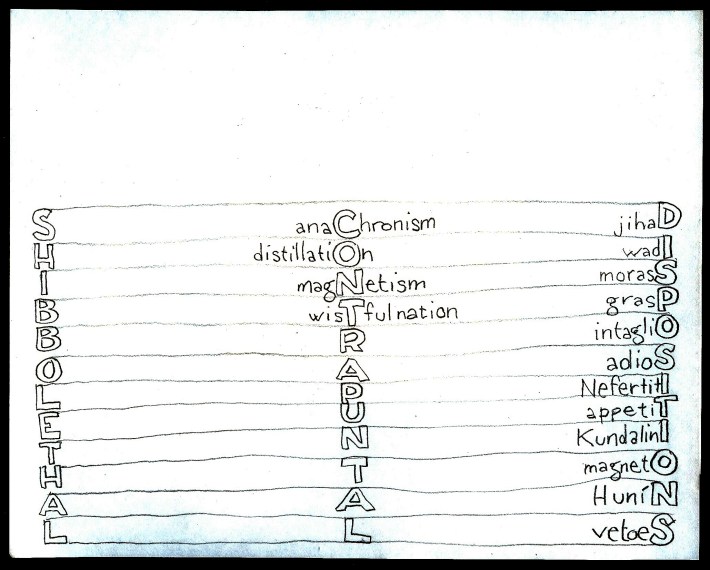 S anaChronism jihaD
H distillatiOn wadI
I magNetism morasS
B wisTfulnation grasP
B R intagliO
O A adioS
L P NefertitI
E U appetiT
T N KundalinI
H T magnetO
A A HuníN
L L vetoeS